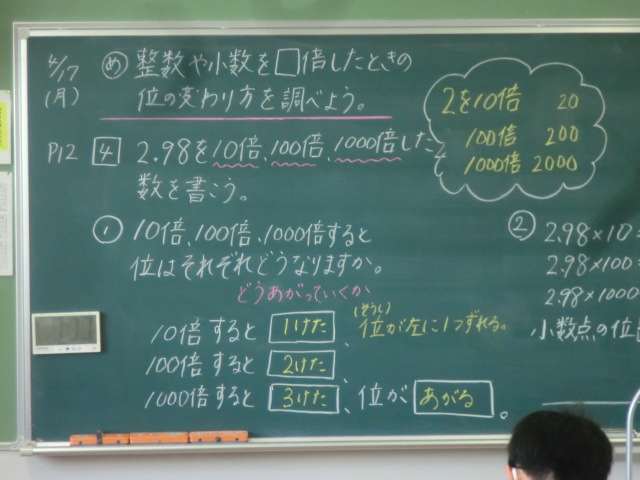 4/17
(月)
め 整数や小数を□倍したときの
位の変わり方を調べよう。
2を10倍 20
100倍 200
1000倍 2000
P12 4 2.98を10倍、100倍、1000倍した
数を書こう。
① 10倍、100倍、1000倍すると
位はそれぞれどうなりますか。
どうあがっていくか
10倍すると 1けた、位が左に1つずれる。
100倍すると 2けた、
1000倍すると 3けた、位が あがる。
② 2.98×10=
2.98×100=
2.98×1000
小数点の位